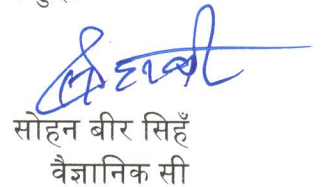 सोहन बीर सिहँ
वैज्ञानिक सी